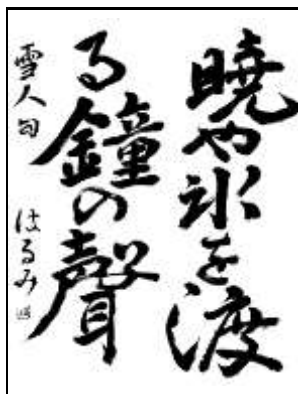 暁や氷を渡
る鐘の聲
雪人句 はるみ